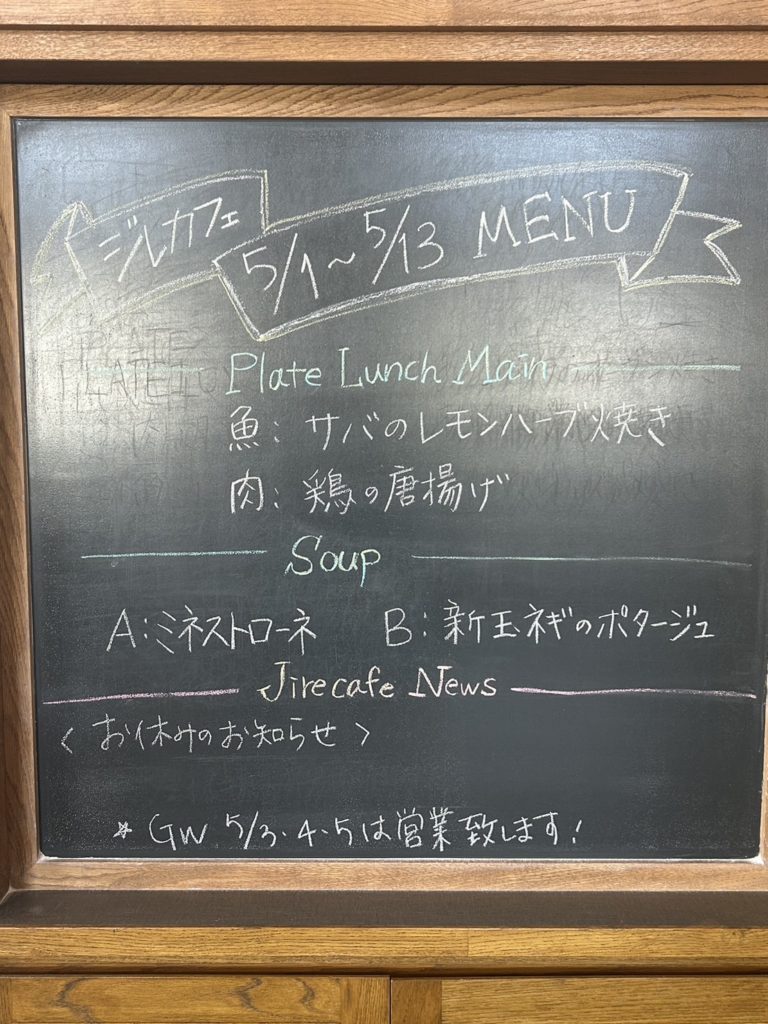 ジルカフェ
5/1~5/13 MENU
Plate Lunch Main
魚: サバのレモンハーブ焼き
肉: 鶏の唐揚げ
Soup
A:ミネストローネ B:新玉ネギのポタージュ
Jirecafe News
〈お休みのお知らせ〉
* GW 5/3・4・5は営業致します!